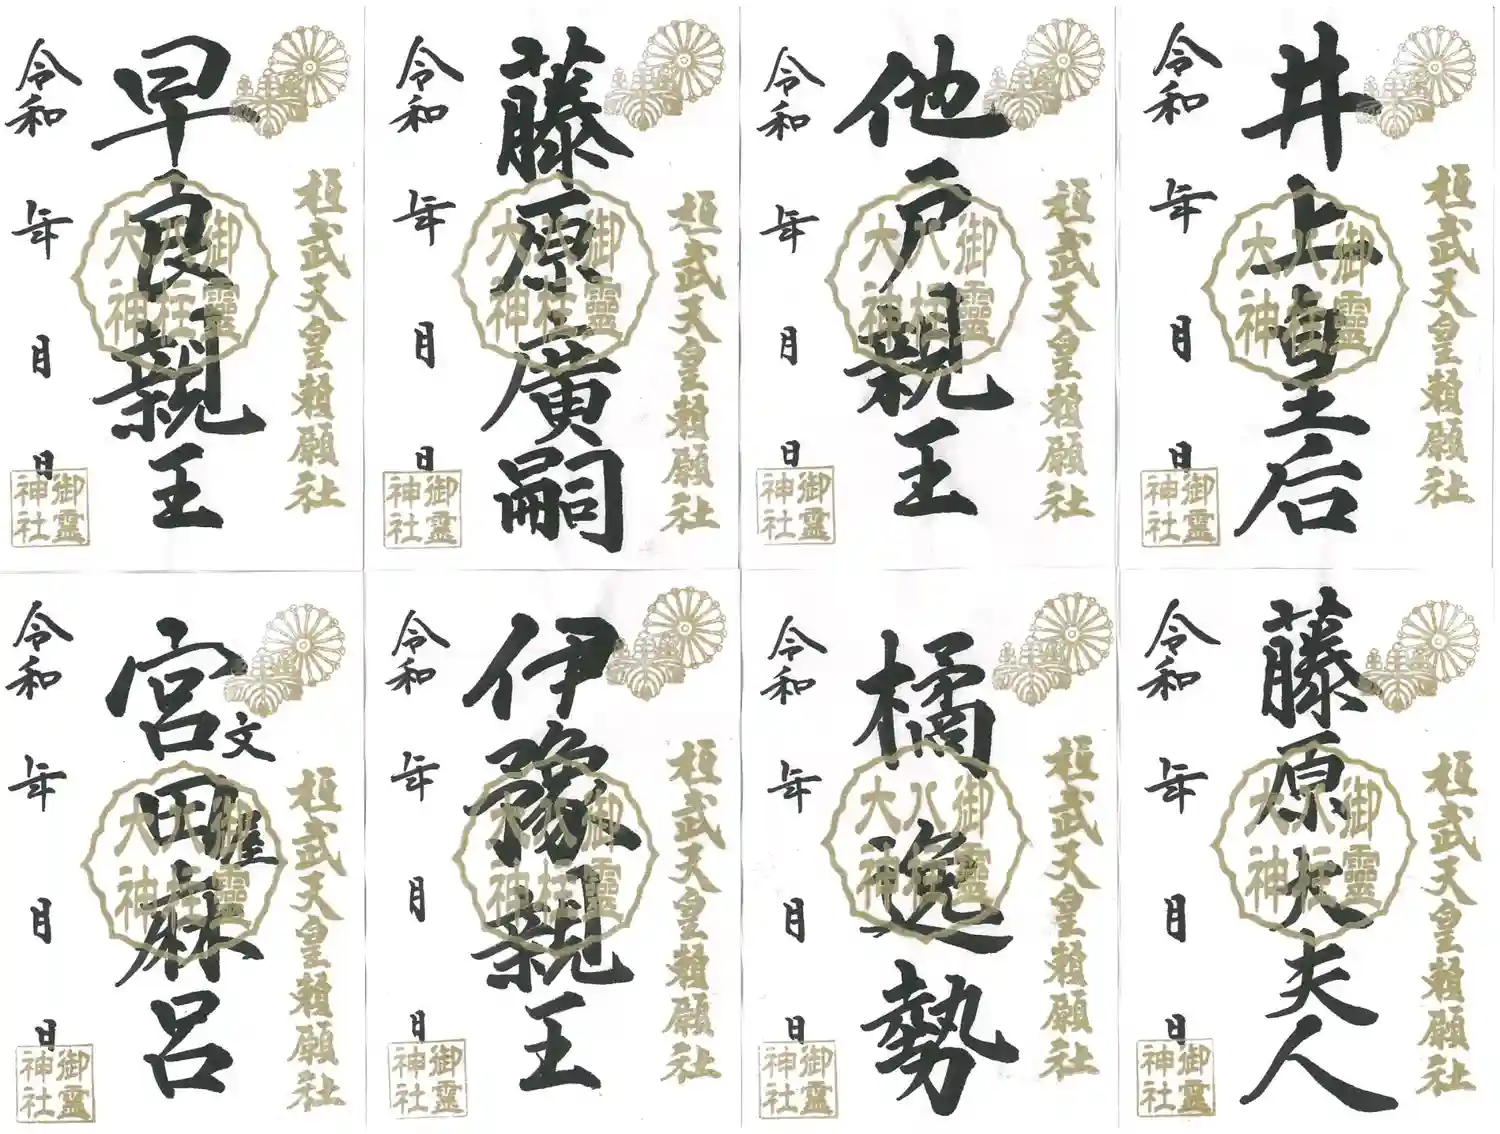 桓武天皇頼願社
井上皇后
御靈八柱大神
令和 年 月 日
御靈神社
桓武天皇頼願社
他戸親王
御靈八柱大神
令和 年 月 日
御靈神社
桓武天皇頼願社
藤原廣嗣
御靈八柱大神
令和 年 月 日
御靈神社
桓武天皇頼願社
早良親王
御靈八柱大神
令和 年 月 日
御靈神社
桓武天皇頼願社
藤原大夫人
御靈八柱大神
令和 年 月 日
御靈神社
桓武天皇頼願社
橘逸勢
御靈八柱大神
令和 年 月 日
御靈神社
桓武天皇頼願社
伊豫親王
御靈八柱大神
令和 年 月 日
御靈神社
桓武天皇頼願社
文屋
宮田麻呂
御靈八柱大神
令和 年 月 日
御靈神社